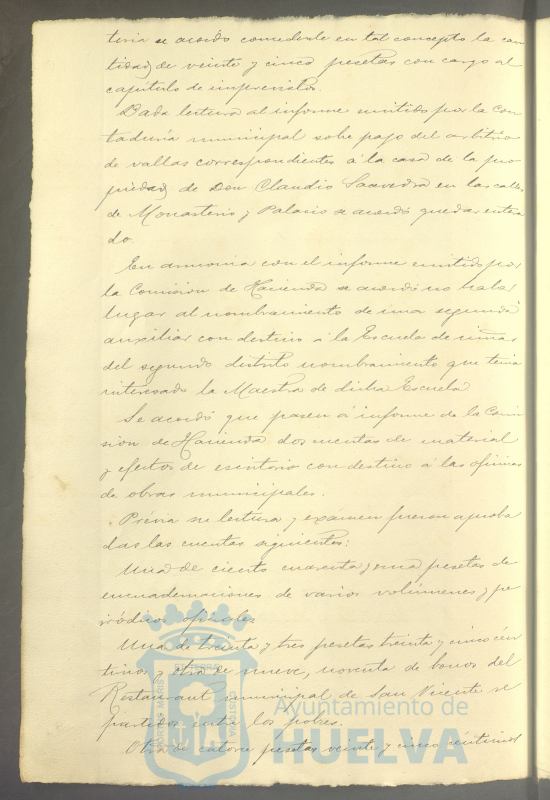 teria se acordo concederle en tal concepto la can
tidad de veinte y cinco pesetas con cargo al
capitulo de imprevistos.
Dada lectura al informe emitido por la Con
taduria municipal sobre pago del arbitrio
de vallas correspondientes á la casa de la pro
piedad de Don Claudio Saavedra en las calles
de Monasterio y Palacio se acordó quedar entera
do.
En armonia con el informe emitido por
la Comision de Hacienda se acordó no haber
lugar al nombramiento de una segunda
auxiliar con destino á la Escuela de niñas
del segundo distrito nombramiento que tenia
interesado la Maestra de dicha Escuela
Se acordó que pasen á informe de la Comi
sion de Hacienda dos cuentas de material
y efectos de escritorio con destino á las oficinas
de obras municipales.
Prévia su lectura y exámen fueron aproba
das las cuentas siguientes:
Una de ciento cuarenta y una pesetas de
encuadernaciones de varios volúmenes y pe
riódicos oficiales
Una de treinta y tres pesetas treinta y cinco cén
timos y otra de nueve, noventa de bonos del
Restaurant municipal de San Vicente re
partidos entre los pobres.
Otra de catorce pesetas veinte y cinco centimos
Ayuntamiento de
HUELVA